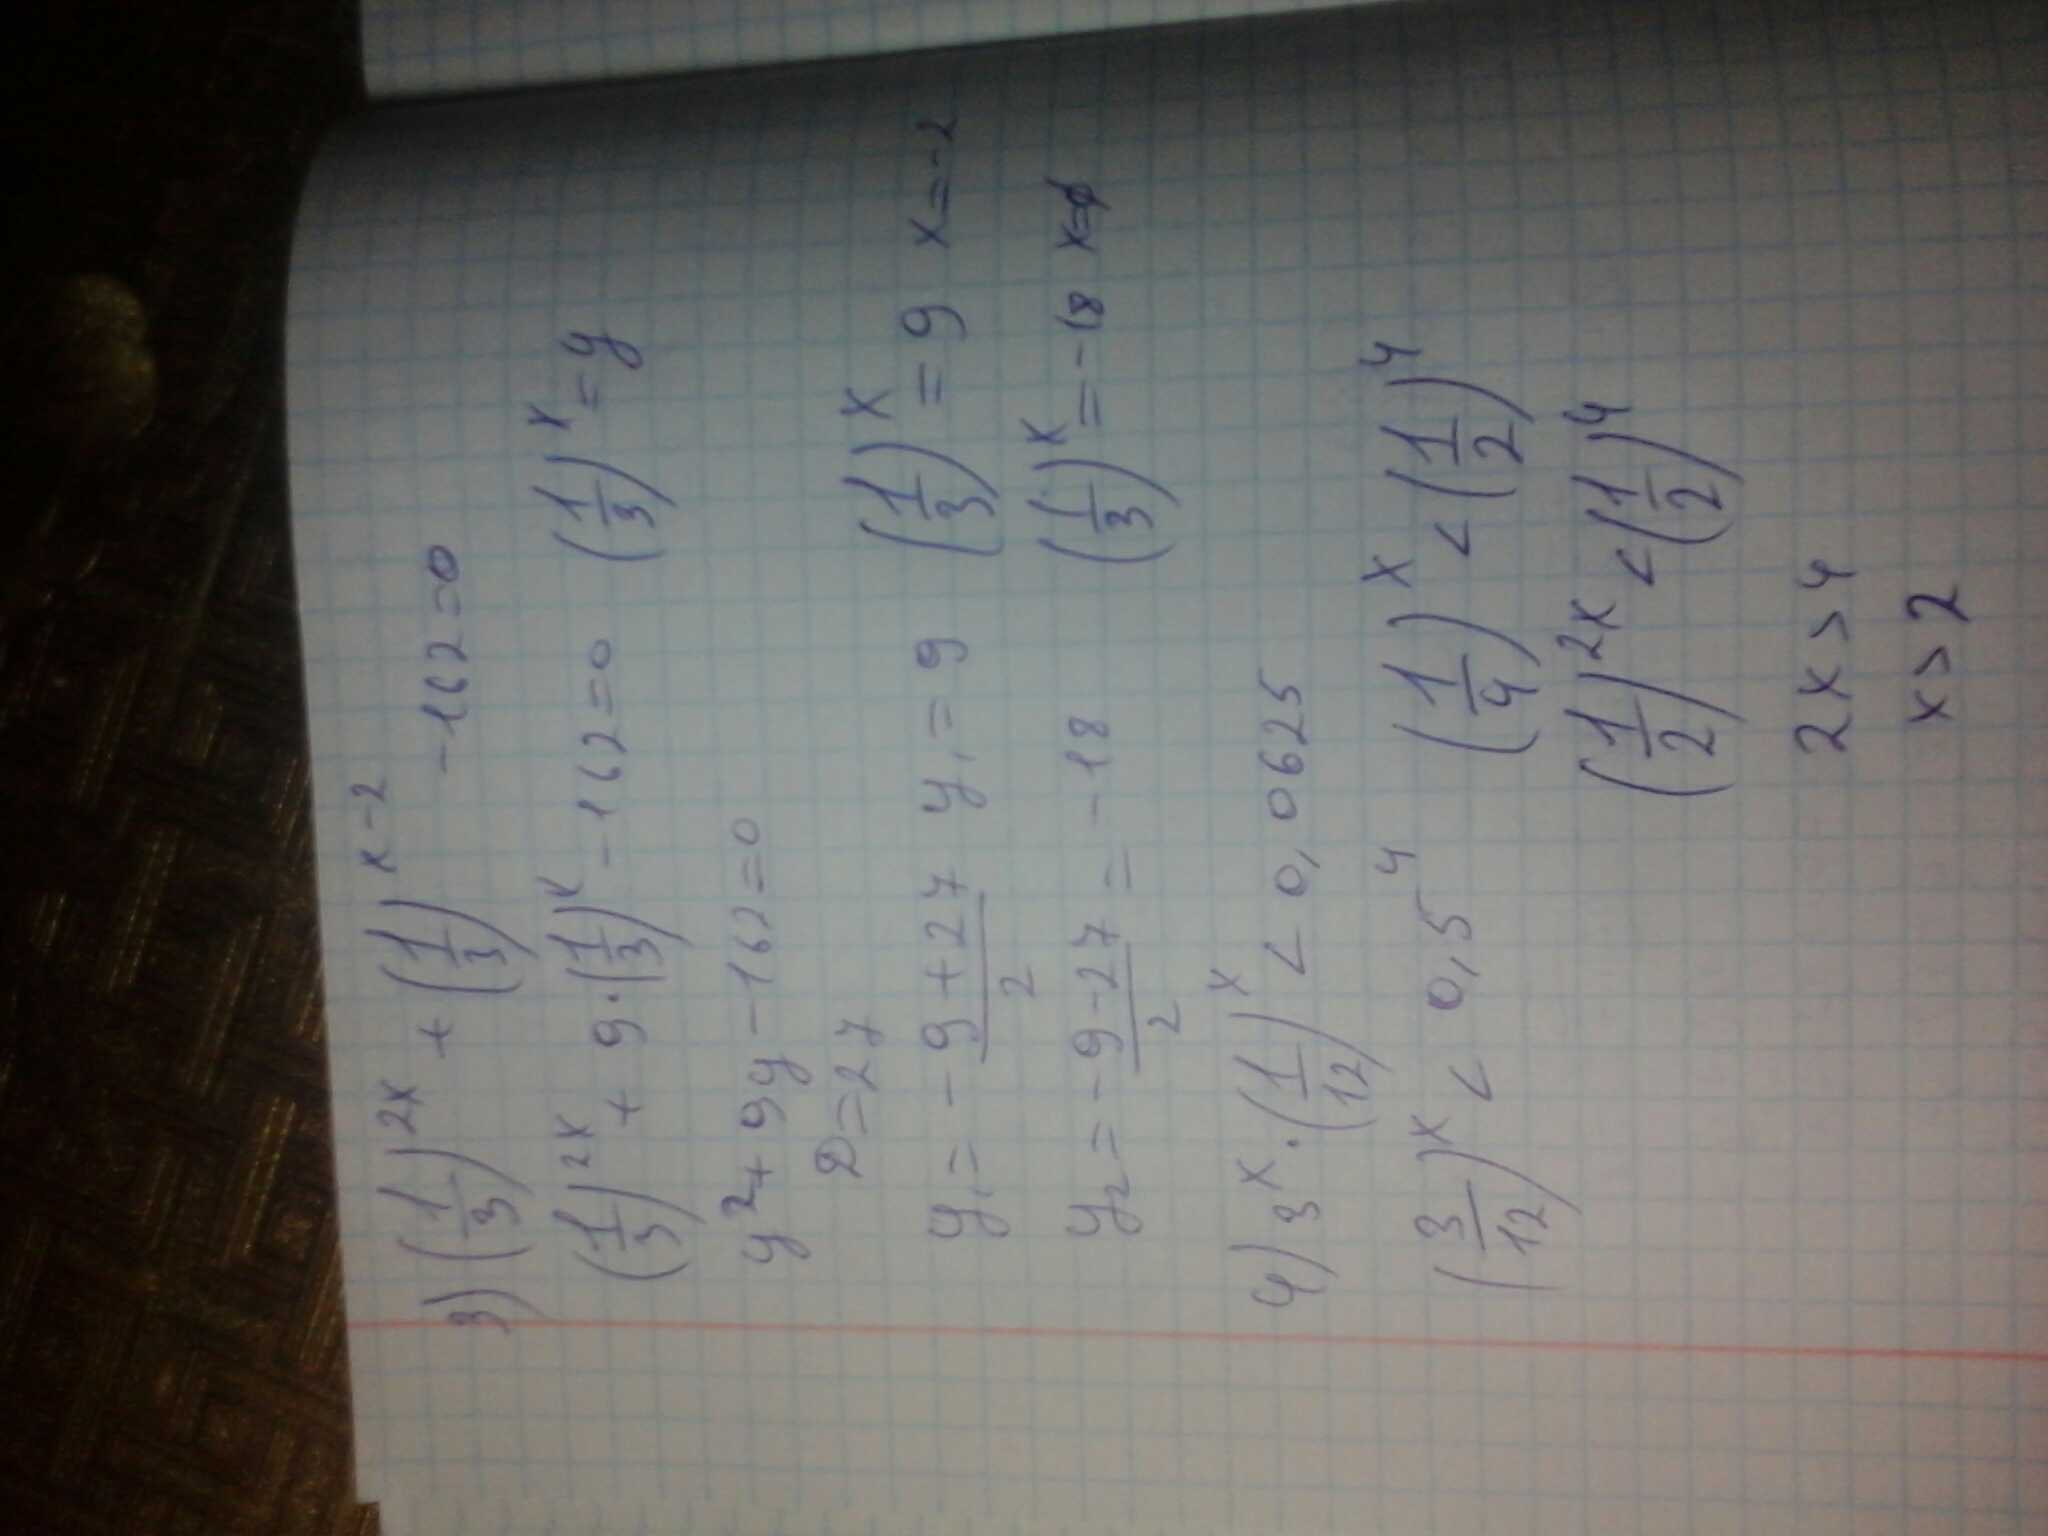 3) (1/3)^2x + (1/3)^x-2 -162=0
(1/3)^2x + 9·(1/3)^x -162=0 (1/3)^x = y
y²+9y-162=0
D=27
y₁ = -9+27/2 y₁=9 (1/3)^x = 9 x=-2
y₂ = -9-27/2 = -18 (1/3)^x = -18 x=∅
4) 3^x · (1/12)^x < 0,0625
(3/12)^x < 0,5^4 (1/4)^x < (1/2)^4
(1/2)^2x < (1/2)^4
2x>4
x>2